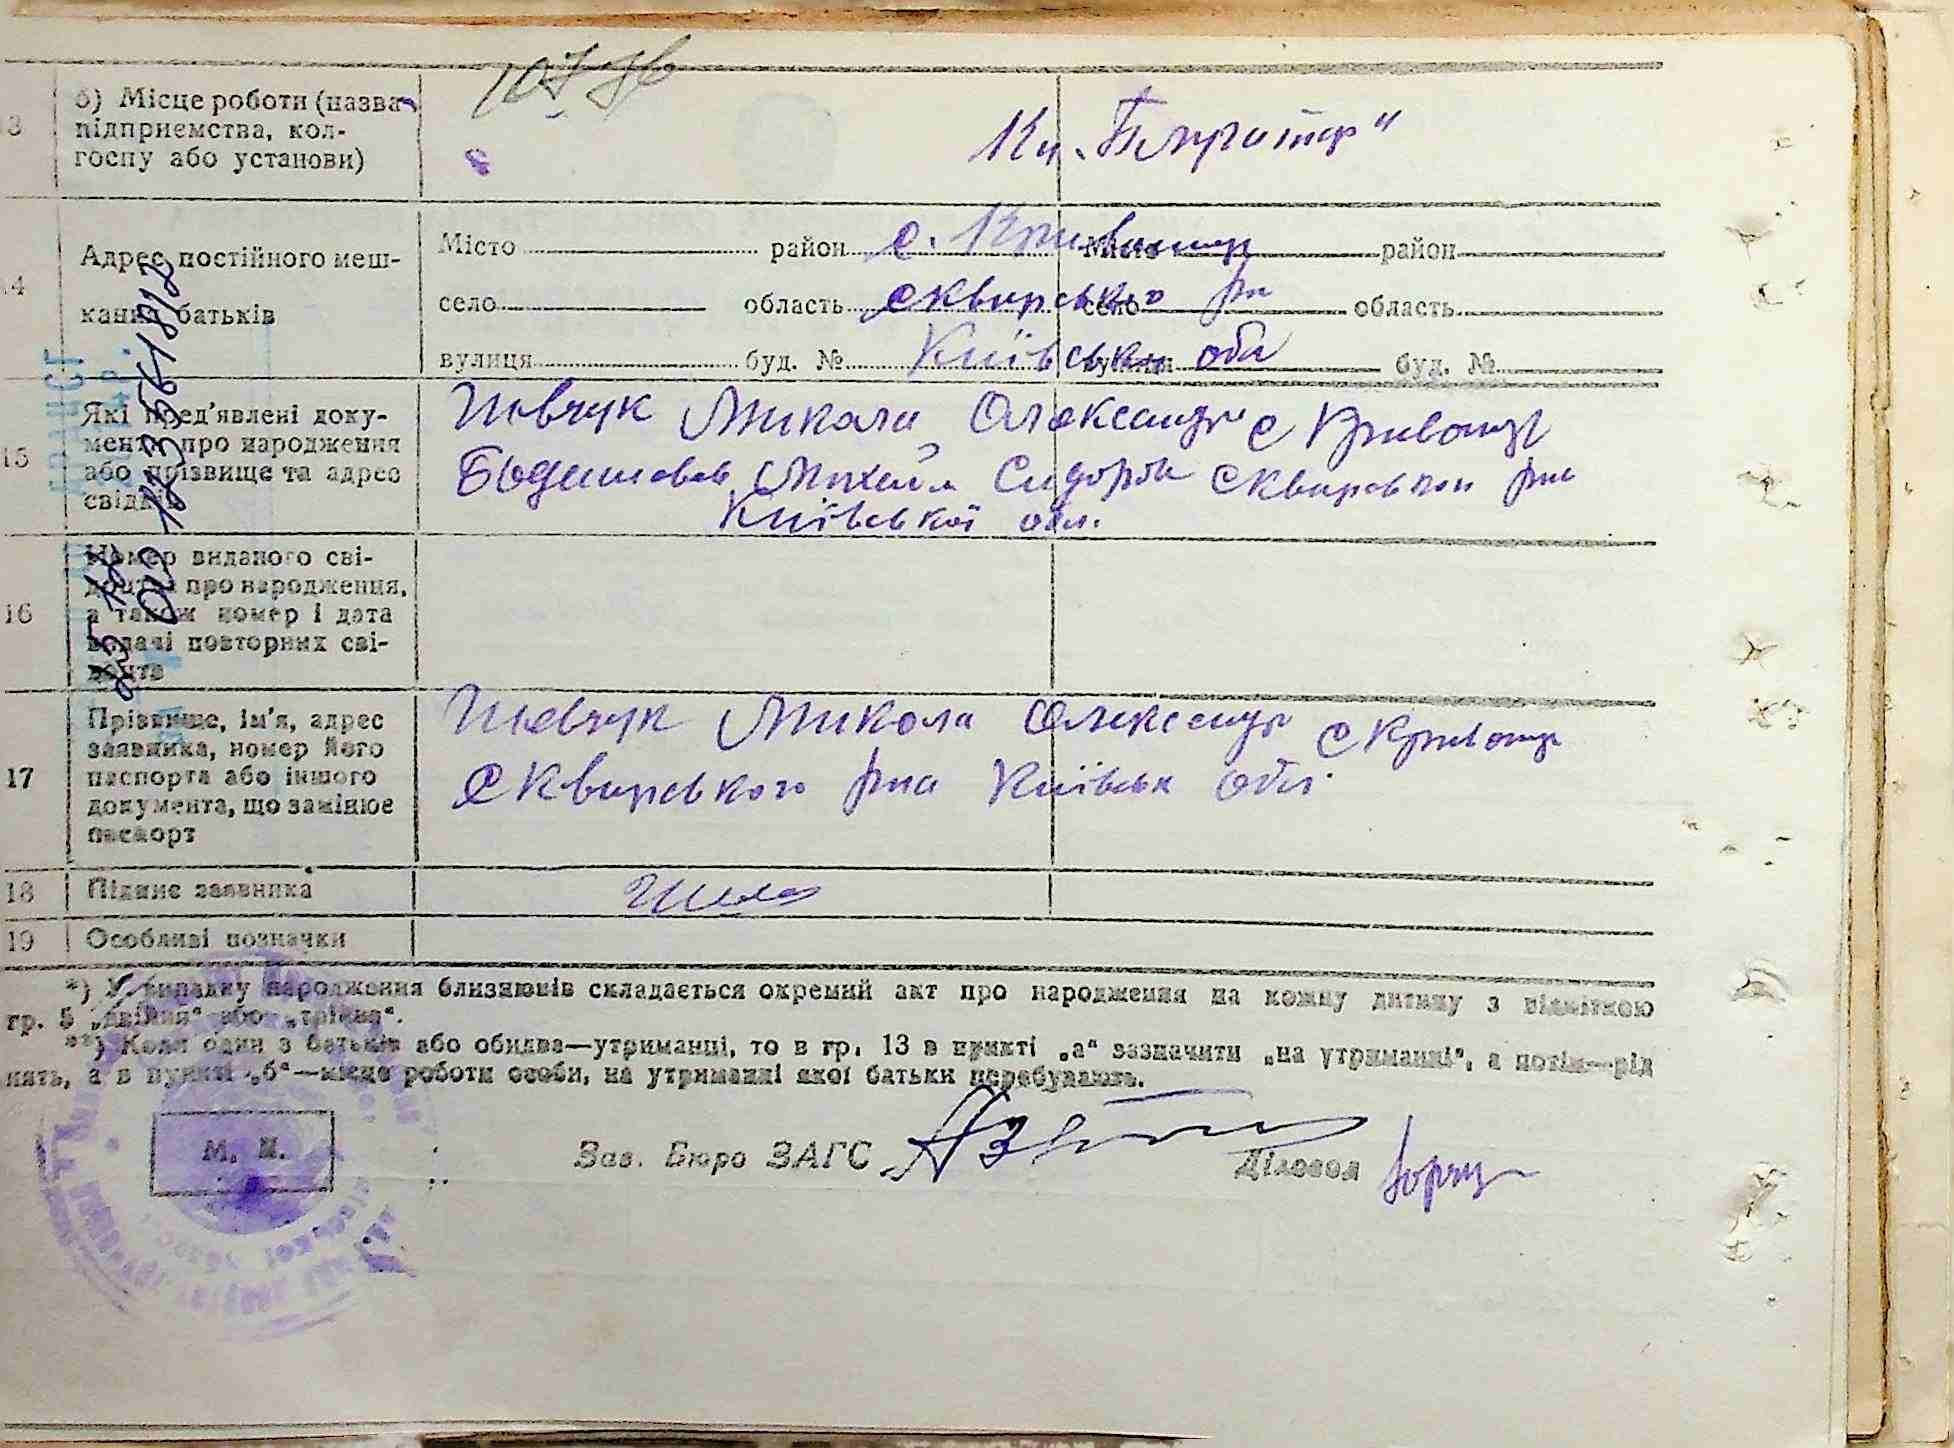 13 б) Місце роботи (назва
підприємства, кол-
госпу або установи)
Кол. "
14 Адрес постійного меш-
кання батьків
Місто район с. Кривошиї Місто район
село область Сквирського рн село область
вулиця буд. № Київськ обл вулиця буд. №
15 Які пред'явлені доку-
менти про народження
або прізвище та адрес
свідків
Шевчук Микола Олександр с Кривошиї
Михайло Сидоров Сквирського рна
Київської обл.
16 Номер виданого сві-
доцтва про народження,
а також номер і дата
видачі повторних сві-
доцтв
17 Прізвище, ім'я, адрес
заявника, номер його
паспорта або іншого
документа, що замінює
паспорт
Шевчук Микола Олександр с Кривошиї
Сквирського рна Київськ обл.
18 Підпис заявника
19 Особливі позначки
*) У випадку народження близнюків складається окремий акт про народження на кожну дитину з відміткою
гр. 5 „двійня“ або „трійня“.
**) Коли один з батьків або обидва—утриманці, то в гр. 13 в пункті „а“ зазначити „на утриманні“, а потім—рід
нять, а в пункті „б“—місце роботи особи, на утриманні якої батьки перебувають.
М. П.
Зав. Бюро ЗАГС
Діловод